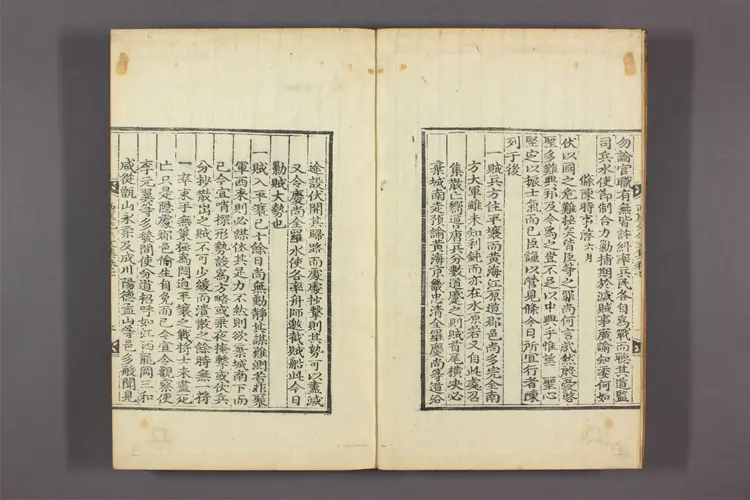 勿論官職有無皆許糾率兵民各自爲戰而聽其道監
司兵水使節制合力勦捕期於滅賊事廣諭知委何如
條陳時事啓 六月
伏以國之危難極矣皆臣等之罪尙何言哉然殷憂啓
聖多難興邦及今爲之豈不足以中興乎惟在 聖心
堅定以振士氣而已臣謹以管見條今日所宜行者陳
列于後
一賊兵方住平壤而黃海江原道郡邑尙多完全南
方大軍雖未知利鈍而亦在水原若又自此處召
集散亡嚮導唐兵分數道處之則賊首尾橫決必
棄城南走預諭黃海京畿忠淸全羅慶尙等道沿
途設伏開其歸路而處處抄擊則其勢可以盡滅
又令慶尙全羅水使各率舟師邀截賊船此今日
勦賊大勢也
一賊入平壤已十餘日尙無動靜其謀難測若非聚
軍西來則必謀依其足力不然則欲棄城南下而
已今宜哨探形勢設爲方略或乘夜掩擊或伏兵
分抄散出之賊不可少緩而潰散之餘時無一將
一卒束手無策極爲悶迫平壤之戰將士未盡死
亡只是隱處鄕邑偸生自免而已今宜令觀察使
李元翼等多發關使分道招呼如江西龍岡三和
咸從甑山永柔及成川陽德孟山等邑多般開見